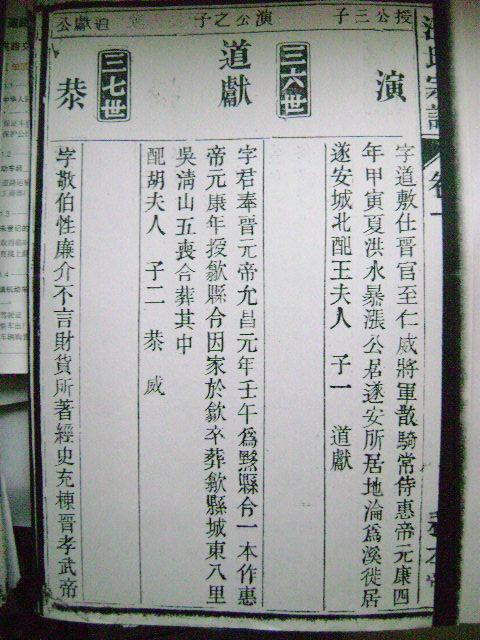 授公三子
演
字道敷仕晉官至仁威將軍散騎常侍惠帝元康四
年甲寅夏洪水暴漲公居遂安所居地淪爲溪徙居
遂安城北配王夫人 子一 道獻
三六世
演公之子
道獻
字君奉晉元帝允昌元年壬午爲黟縣令一本作惠
帝元康年授歙縣令因家於歙卒葬歙縣城東八里
吳清山五喪合葬其中
配胡夫人 子二 恭 威
三七世
獻公
恭
字敬伯性廉介不言財貨所著經史充棟晉孝武帝
氏宗譜
卷一